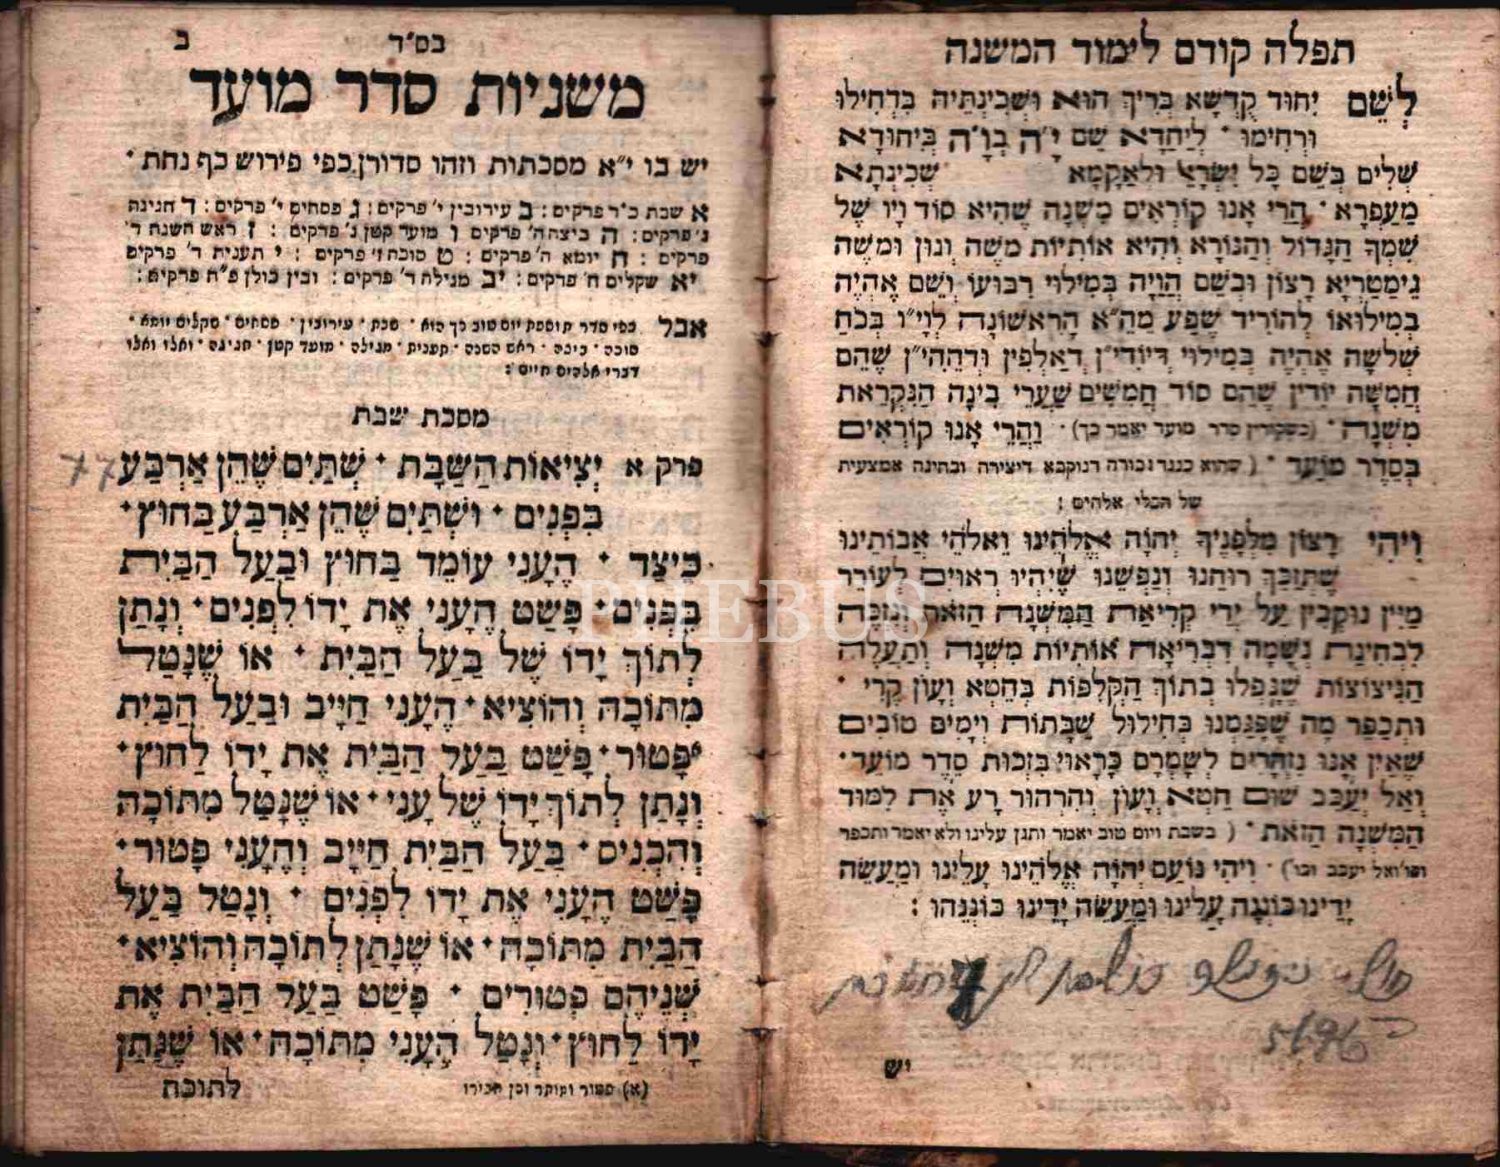 תפלה קודם לימוד המשנה
לְשֵׁם יִחוּד קֻדְשָׁא בְּרִיךְ הוּא וּשְׁכִינְתֵּיהּ בִּדְחִילוּ
וּרְחִימוּ · לְיַחֲדָא שֵׁם י״ה בְּו״ה בְּיִחוּדָא
שְׁלִים בְּשֵׁם כָּל יִשְׂרָאֵל וּלְאָקָמָא שְׁכִינְתָּא
מֵעַפְרָא · הֲרֵי אָנוּ קוֹרְאִים מִשְׁנָה שֶׁהִיא סוֹד וָיו שֶׁל
שִׁמְךָ הַגָּדוֹל וְהַנּוֹרָא וְהִיא אוֹתִיּוֹת מֹשֶׁה וְנוּן וּמֹשֶׁה
גִימַטְרִיָּא רָצוֹן וּבְשֵׁם הֲוָיָה בְּמִילוּי רִבּוּעוֹ וְשֵׁם אֶהְיֶה
בְּמִילוּאוֹ לְהוֹרִיד שֶׁפַע מֵהֵ״א הָרִאשׁוֹנָה לְוָי״ו בְּכֹחַ
שְׁלֹשָׁה אֶהְיֶה בְּמִילוּי דְּיוּדִי״ן דְּאַלְפִין וּדְהֵהִי״ן שֶׁהֵם
חֲמִשָּׁה יוּדִין שֶׁהֵם סוֹד חֲמִשִּׁים שַׁעֲרֵי בִינָה הַנִּקְרֵאת
מִשְׁנָה · (כשקורין סדר מועד יאמר כך) · וַהֲרֵי אָנוּ קוֹרְאִים
בְּסֵדֶר מוֹעֵד · ( שהוא כנגד גבורה דנוקבא דיצירה ובחינה אמצעית
של הכלי אלהים :
וִיהִי רָצוֹן מִלְּפָנֶיךָ יְהוָה אֱלֹהֵינוּ וֵאלֹהֵי אֲבוֹתֵינוּ
שֶׁתְּזַכֵּךְ רוּחֵנוּ וְנַפְשֵׁנוּ שֶׁיִּהְיוּ רְאוּיִם לְעוֹרֵר
מַיִּין נוּקְבִין עַל יְדֵי קְרִיאַת הַמִּשְׁנָה הַזֹּאת וְנִזְכֶּה
לִבְחִינַת נְשָׁמָה דִּבְרִיאָה אוֹתִיּוֹת מִשְׁנָה וְתַעֲלֶה
הַנִּיצוֹצוֹת שֶׁנָּפְלוּ בְּתוֹךְ הַקְּלִפּוֹת בְּחֵטְא וְעָוֹן קֶרִי ·
וּתְכַפֵּר מַה שֶׁפָּגַמְנוּ בְּחִילּוּל שַׁבָּתוֹת וְיָמִים טוֹבִים
שֶׁאֵין אָנוּ נִזְהָרִים לְשָׁמְרָם כָּרָאוּי בִּזְכוּת סֵדֶר מוֹעֵד ·
וְאַל יְעַכֵּב שׁוּם חֵטְא וְעָוֹן וְהִרְהוּר רָע אֶת לִמּוּד
הַמִּשְׁנָה הַזֹּאת · ( בשבת ויום טוב יאמר ותגן עלינו ולא יאמר ותכפר
וכו׳ ואל יעכב וכו׳) · וִיהִי נוֹעַם יְהוָה אֱלֹהֵינוּ עָלֵינוּ וּמַעֲשֵׂה
יָדֵינוּ כּוֹנְנָה עָלֵינוּ וּמַעֲשֵׂה יָדֵינוּ כּוֹנְנֵהוּ :
5696
יש
בס״ד
ב
משניות סדר מועד
יש בו י״א מסכתות וזהו סדורן כפי פירוש כף נחת ·
א שבת כ״ד פרקים : ב עירובין י׳ פרקים : ג פסחים י׳ פרקים : ד חגיגה
ג׳ פרקים : ה ביצה ה׳ פרקים ו מועד קטן ג׳ פרקים : ז ראש השנה ד׳
פרקים : ח יומא ה׳ פרקים : ט סוכת ז׳ פרקים : י תענית ד׳ פרקים
יא שקלים ח׳ פרקים : יב מגילה ד׳ פרקים : ובין כולן פ״ח פרקים :
אבל כפי סדר תוספת יום טוב כך הוא · שבת · עירובין · פסחים · שקלים יומא ·
סוכה · ביצה · ראש השנה · תענית · מגילה · מועד קטן · חגיגה · ואלו ואלו
דברי אלהים חיים :
מסכת שבת
פרק א יְצִיאוֹת הַשַּׁבָּת · שְׁתַּיִם שֶׁהֵן אַרְבַּע
בִּפְנִים · וּשְׁתַּיִם שֶׁהֵן אַרְבַּע בַּחוּץ ·
כֵּיצַד · הֶעָנִי עוֹמֵד בַּחוּץ וּבַעַל הַבַּיִת
בִּפְנִים · פָּשַׁט הֶעָנִי אֶת יָדוֹ לִפְנִים · וְנָתַן
לְתוֹךְ יָדוֹ שֶׁל בַּעַל הַבַּיִת · אוֹ שֶׁנָּטַל
מִתּוֹכָהּ וְהוֹצִיא · הֶעָנִי חַיָּיב וּבַעַל הַבַּיִת
פָּטוּר · פָּשַׁט בַּעַל הַבַּיִת אֶת יָדוֹ לַחוּץ ·
וְנָתַן לְתוֹךְ יָדוֹ שֶׁל עָנִי · אוֹ שֶׁנָּטַל מִתּוֹכָהּ
וְהִכְנִיס · בַּעַל הַבַּיִת חַיָּיב וְהֶעָנִי פָּטוּר ·
פָּשַׁט הֶעָנִי אֶת יָדוֹ לִפְנִים · וְנָטַל בַּעַל
הַבַּיִת מִתּוֹכָהּ · אוֹ שֶׁנָּתַן לְתוֹכָהּ וְהוֹצִיא ·
שְׁנֵיהֶם פְּטוּרִים · פָּשַׁט בַּעַל הַבַּיִת אֶת
יָדוֹ לַחוּץ · וְנָטַל הֶעָנִי מִתּוֹכָהּ · אוֹ שֶׁנָּתַן
(א) פטור ומותר וכן חבירו
לתוכה
PHEBUS